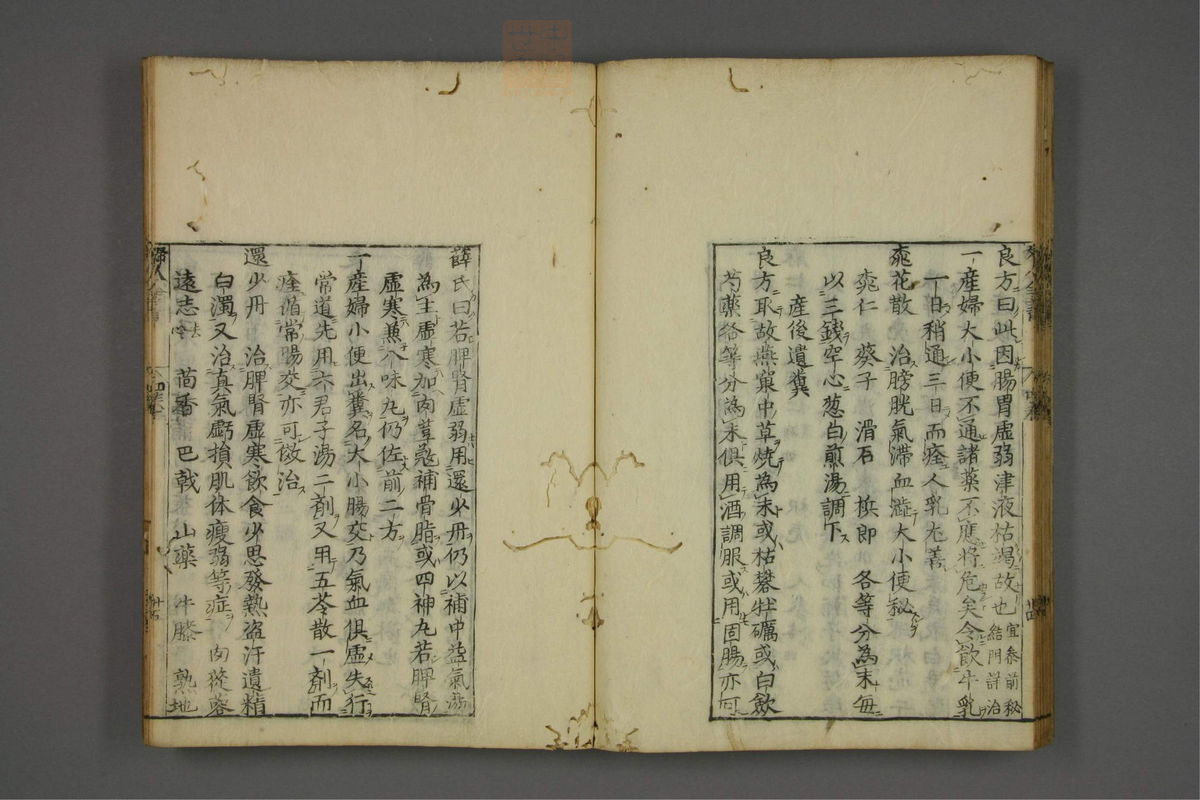 良方曰此因腸胃虛弱津液枯竭故也宜参前秘結門詳治
一產婦大小便不通諸藥不應將危矣令飲牛乳
一日稍通三日而痊人乳尤善
桃花散 治膀胱氣滯血澁大小便秘
桃仁 葵子 滑石 梹即 各等分為末毎
以三錢空心葱白煎湯調下
產後遺糞
良方取故燕窠中草燒為末或枯礬牡礪或白歛
芍藥各等分為末俱用酒調服或用固腸亦可
薛氏曰若脾腎虛弱用還少丹仍以補中益氣湯
為主虛寒加肉荳蔲補骨脂或四神丸若脾腎
虛寒兼八味丸仍佐前二方
一產婦小便出糞名大小腸交乃氣血俱虛失行
常道先用六君子湯二剤又用五苓散一剤而
痊循常腸交亦可倣治
還少丹 治脾腎虛寒飲食少思發熱盗汗遺精
白濁又治真氣虧損肌体瘦弱等症 肉蓯蓉
遠志去 茴香 巴戟 山藥 牛膝 熟地